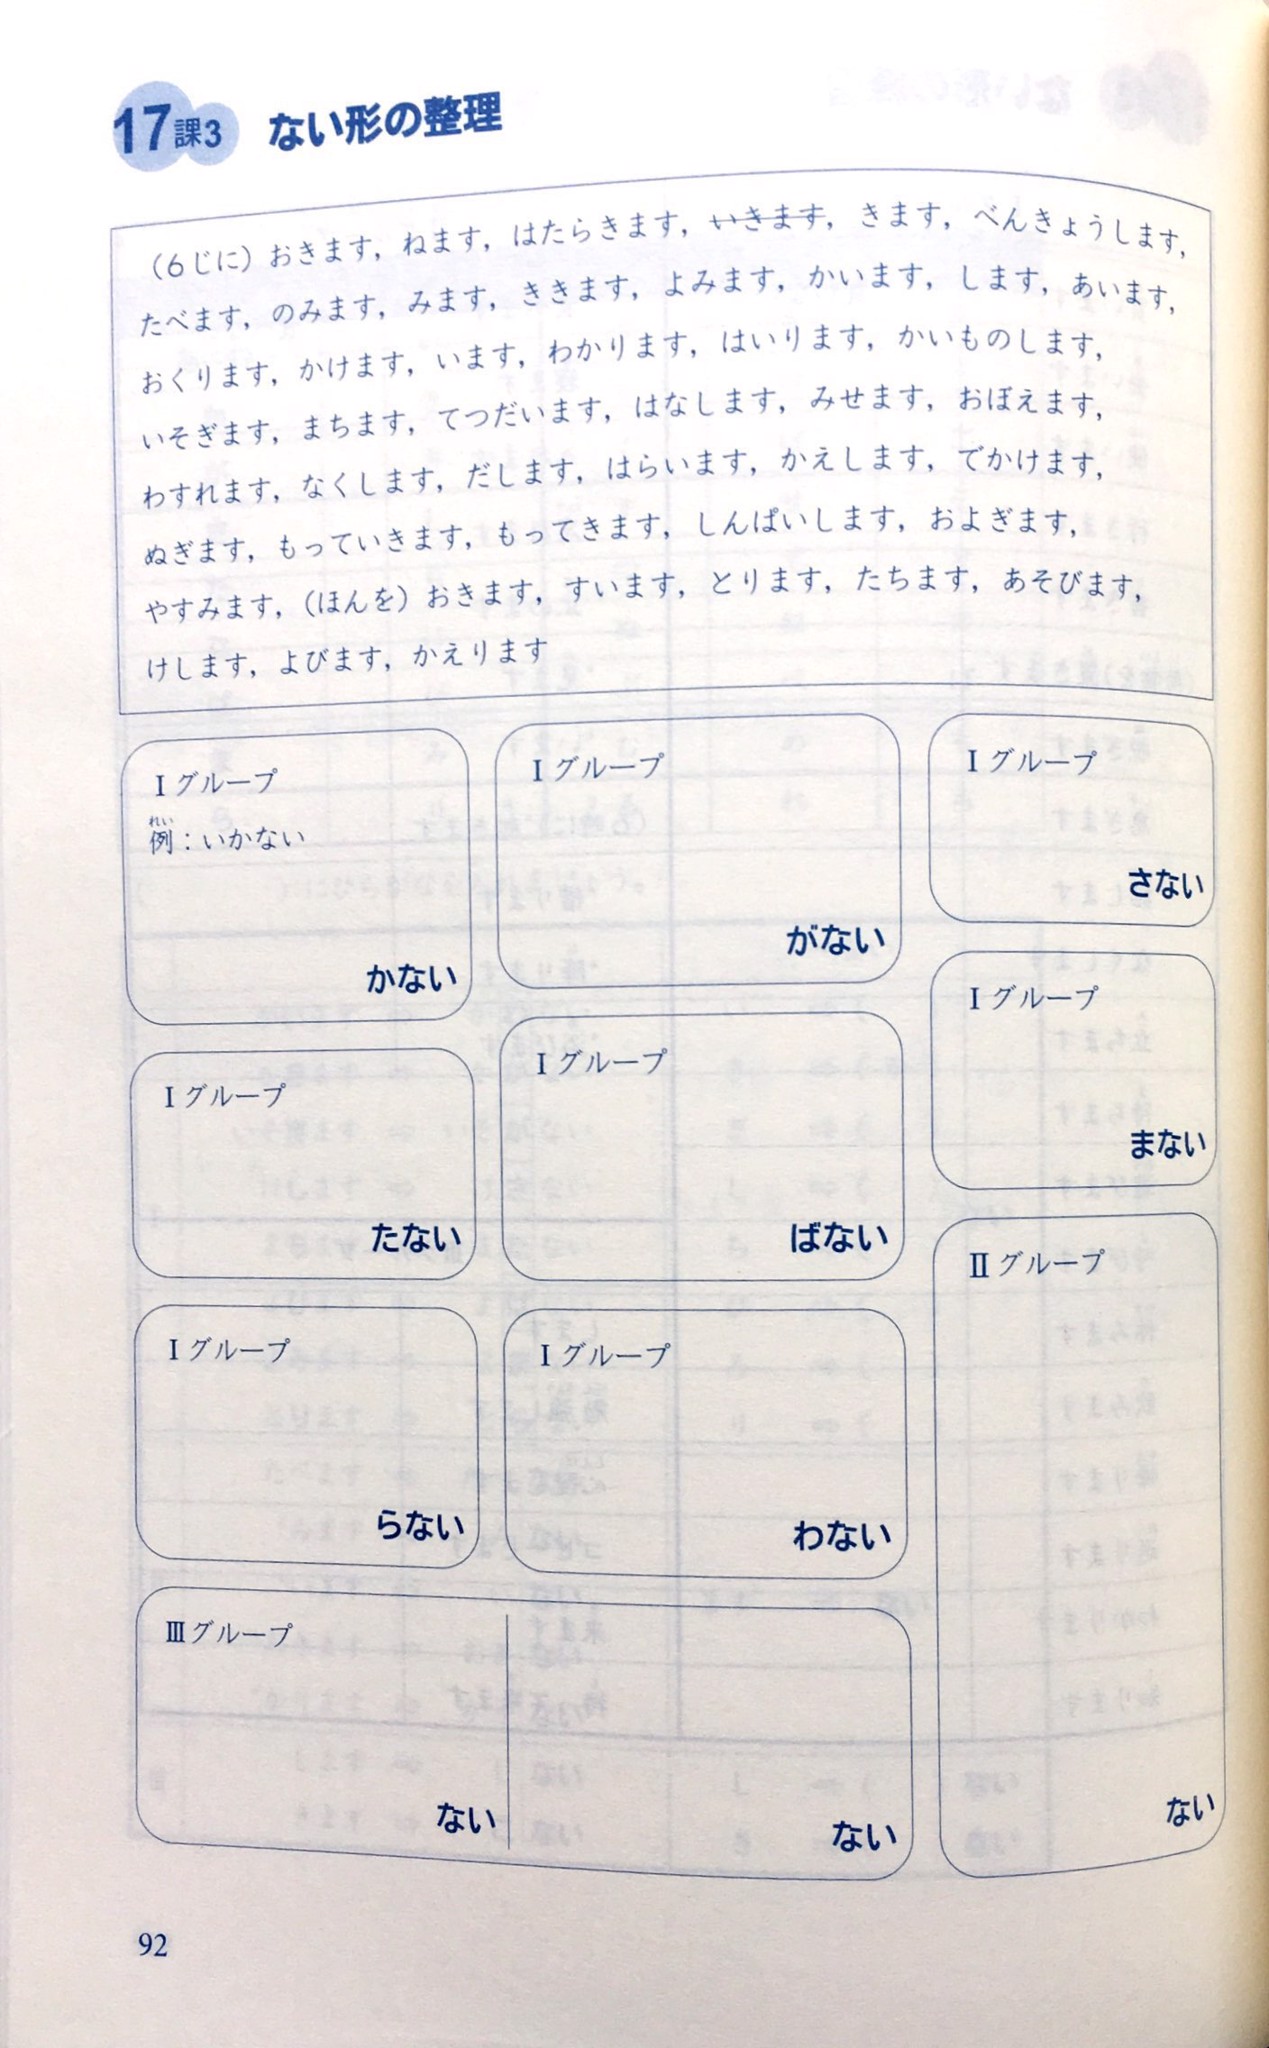 17課3 ない形の整理
（6じに）おきます，ねます，はたらきます，いきます，きます，べんきょうします，
たべます，のみます，みます，ききます，よみます，かいます，します，あいます，
おくります，かけます，います，わかります，はいります，かいものします，
いそぎます，まちます，てつだいます，はなします，みせます，おぼえます，
わすれます，なくします，だします，はらいます，かえします，でかけます，
ぬぎます，もっていきます，もってきます，しんぱいします，およぎます，
やすみます，（ほんを）おきます，すいます，とります，たちます，あそびます，
けします，よびます，かえります
Ⅰグループ
れい
例：いかない
かない
Ⅰグループ
がない
Ⅰグループ
さない
Ⅰグループ
たない
Ⅰグループ
ばない
Ⅰグループ
まない
Ⅰグループ
らない
Ⅰグループ
わない
Ⅱグループ
ない
Ⅲグループ
ない
ない
92